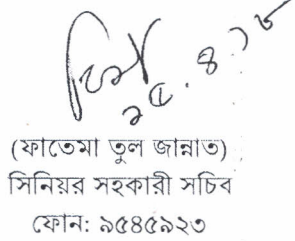 ২৫.৪.১৮
(ফাতেমা তুল জান্নাত)
সিনিয়র সহকারী সচিব
ফোন: ৯৫৪৫৯২৩